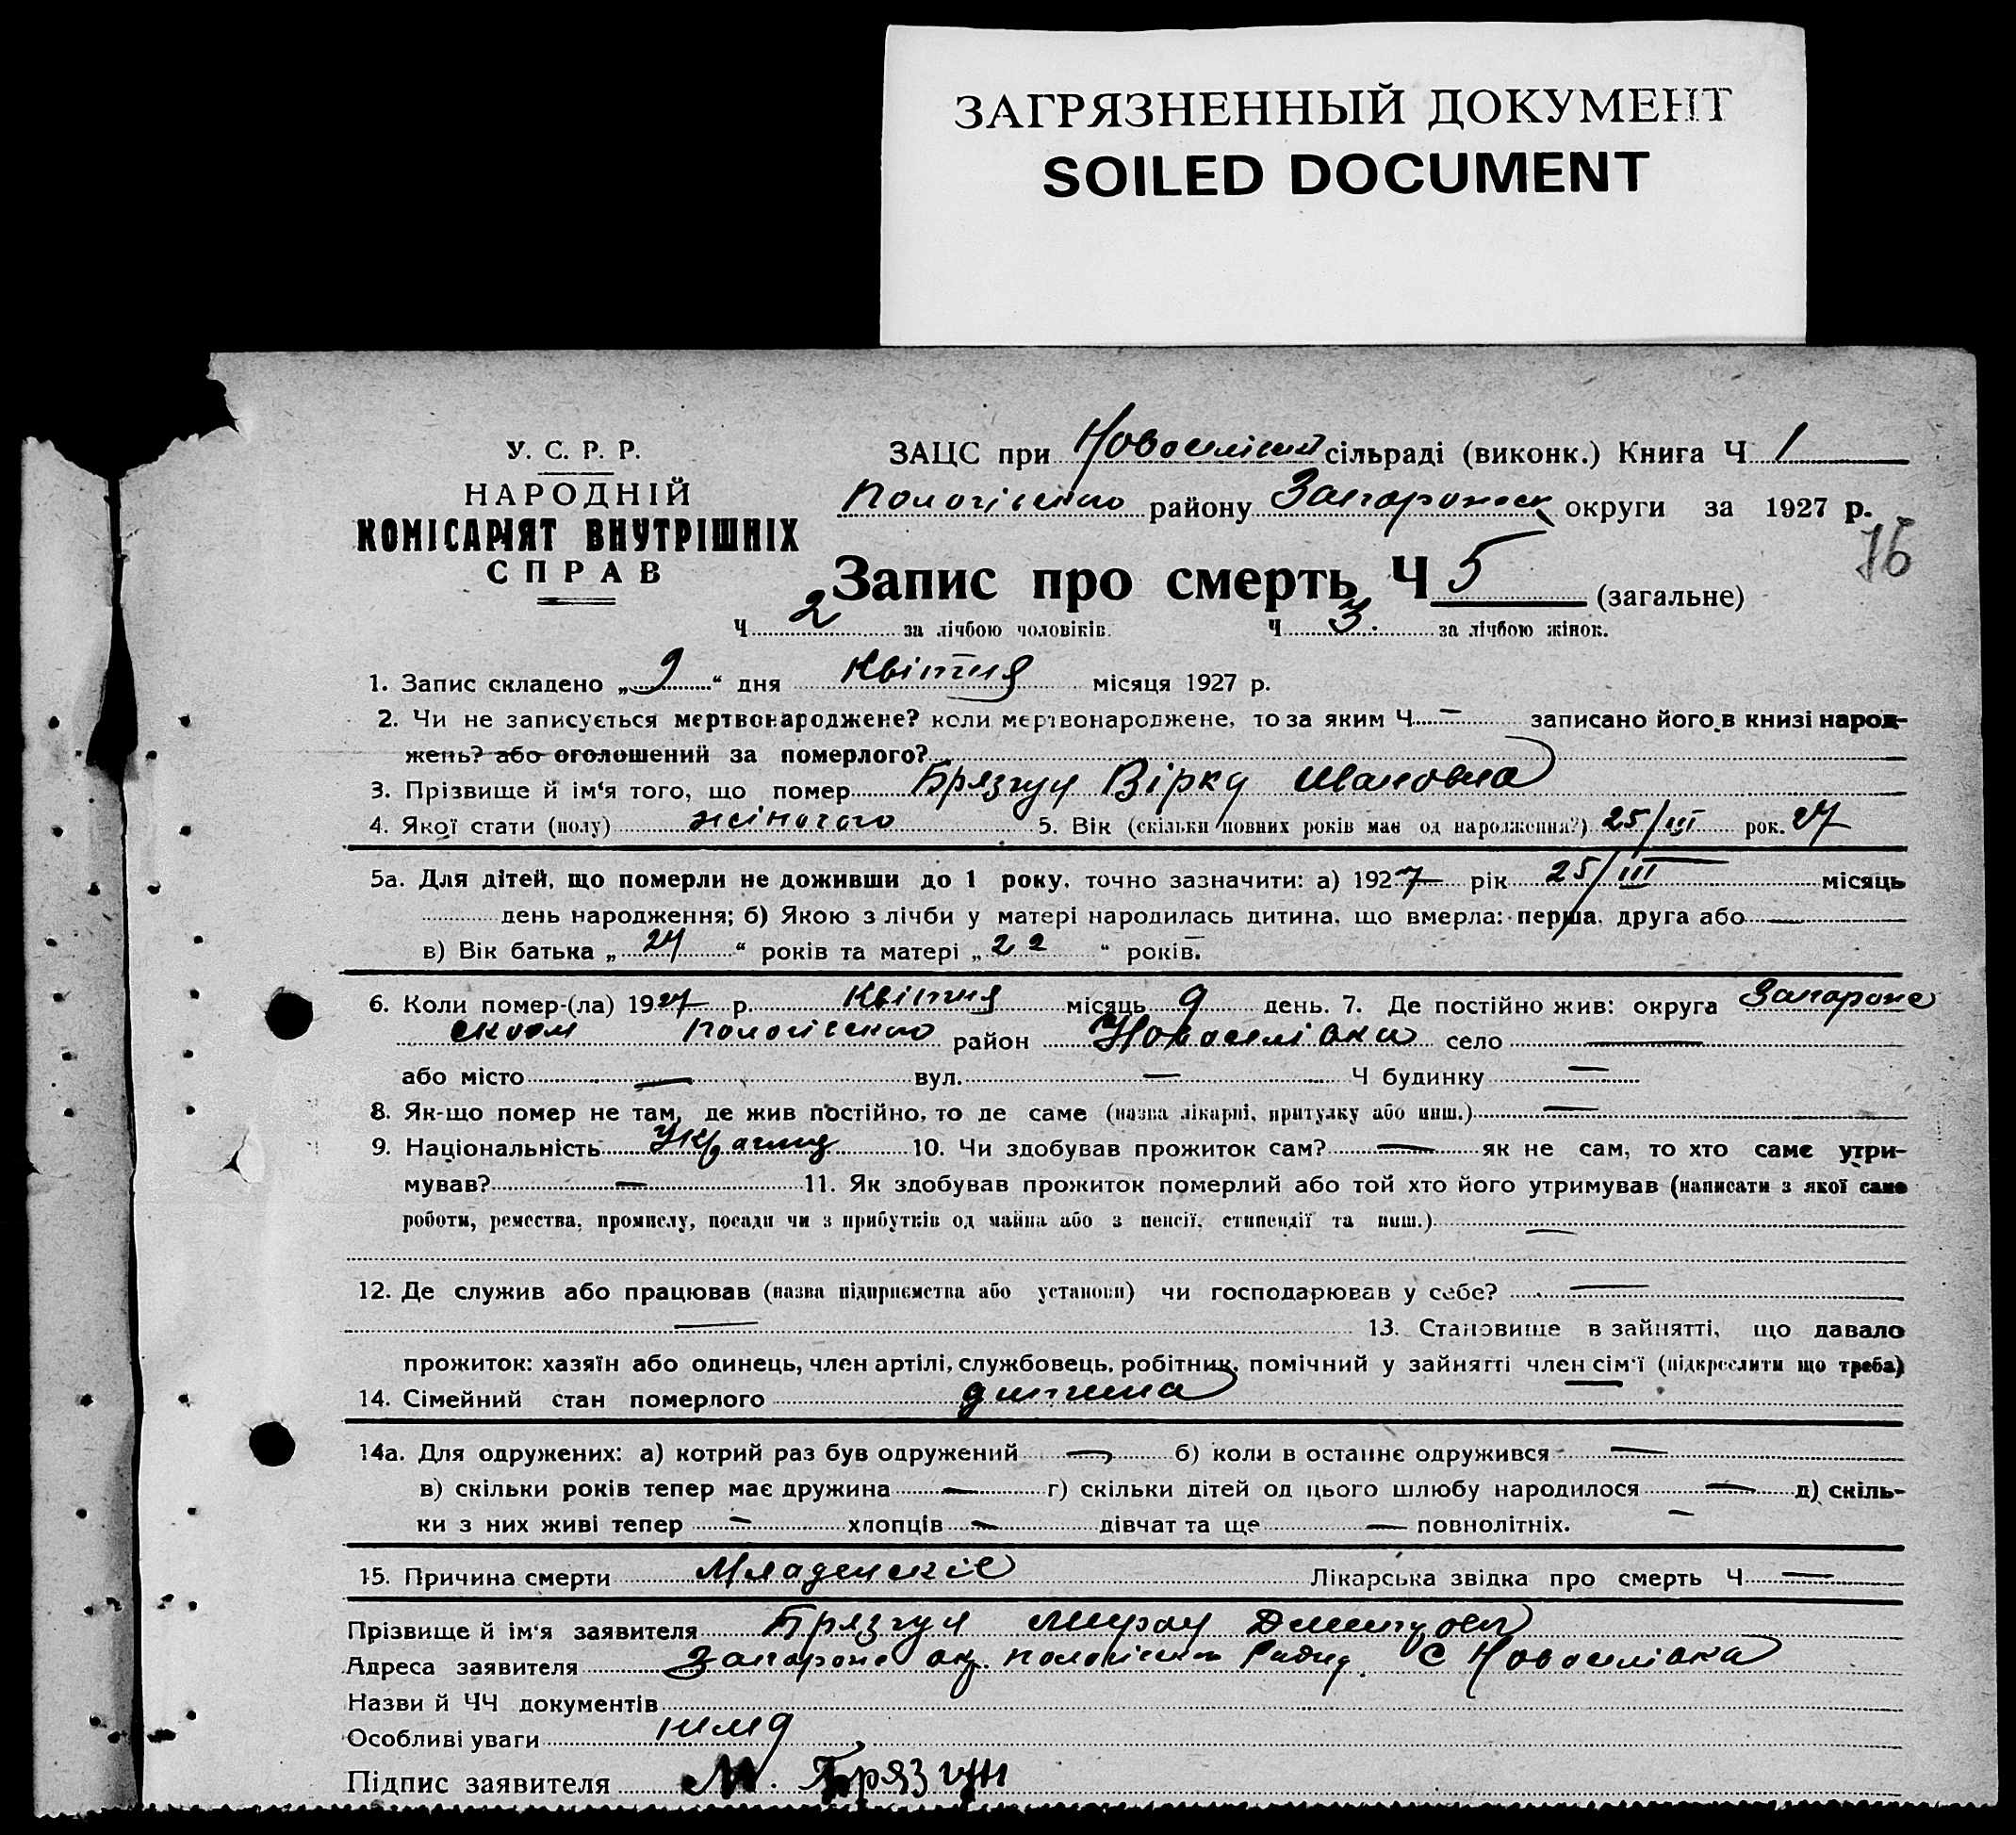 ЗАГРЯЗНЕННЫЙ ДОКУМЕНТ
SOILED DOCUMENT
У. С. Р. Р.
НАРОДНІЙ
КОМІСАРІЯТ ВНУТРІШНІХ
СПРАВ
ЗАЦС при сільраді (виконк.) Книга Ч 1
Пологівсько району Запорожск округи за 1927 р.
76
Запис про смерть Ч 5 (загальне)
Ч 2 за лічбою чоловіків. Ч 3. за лічбою жінок.
1. Запис складено „ 9 “ дня Квітня місяця 1927 р.
2. Чи не записується мертвонароджене? коли мертвонароджене, то за яким Ч – записано його в книзі народ-
жень? або оголошений за померлого?
3. Прізвище й ім‘я того, що помер Брязгун Вірку
4. Якої стати (полу) жіночого 5. Вік (скільки повних років має од народження?) 25/III рок. 27
5а. Для дітей, що померли не доживши до 1 року, точно зазначити: а) 1927 рік 25/III місяць
день народження; б) Якою з лічби у матері народилась дитина, що вмерла: перша, друга або —
в) Вік батька „ 24 “ років та матері „ 22 “ років.
6. Коли помер-(ла) 1927 р. Квітня місяць 9 день. 7. Де постійно жив: округа Запороже
ском Пологівсько район Новоселівка село —
або місто — вул. — Ч будинку —
8. Як-що помер не там, де жив постійно, то де саме (назва лікарні, притулку або инш.) —
9. Національність 10. Чи здобував прожиток сам? — як не сам, то хто саме утри-
мував? — 11. Як здобував прожиток померлий або той хто його утримував (написати з якої само
роботи, ремества, промислу, посади чи з прибутків од майна або з пенсії, стипендії та инш.) —
12. Де служив або працював (назва підприємства або установи) чи господарював у себе? —
— 13. Становище в зайнятті, що давало
прожиток: хазяїн або одинець, член артілі, службовець, робітник, помічний у зайнятті член сім‘ї (підкреслити що треба)
14. Сімейний стан померлого дитина
14а. Для одружених: а) котрий раз був одружений — б) коли в останнє одружився —
в) скільки років тепер має дружина — г) скільки дітей од цього шлюбу народилося — д) скіль-
ки з них живі тепер – хлопців – дівчат та ще — повнолітніх.
15. Причина смерти Младенскіе Лікарська звідка про смерть Ч —
Прізвище й ім‘я заявителя Брязгун
Адреса заявителя Запороже ок. С Новоселівка
Назви й ЧЧ документів
Особливі уваги нима
Підпис заявителя М. Брязгун